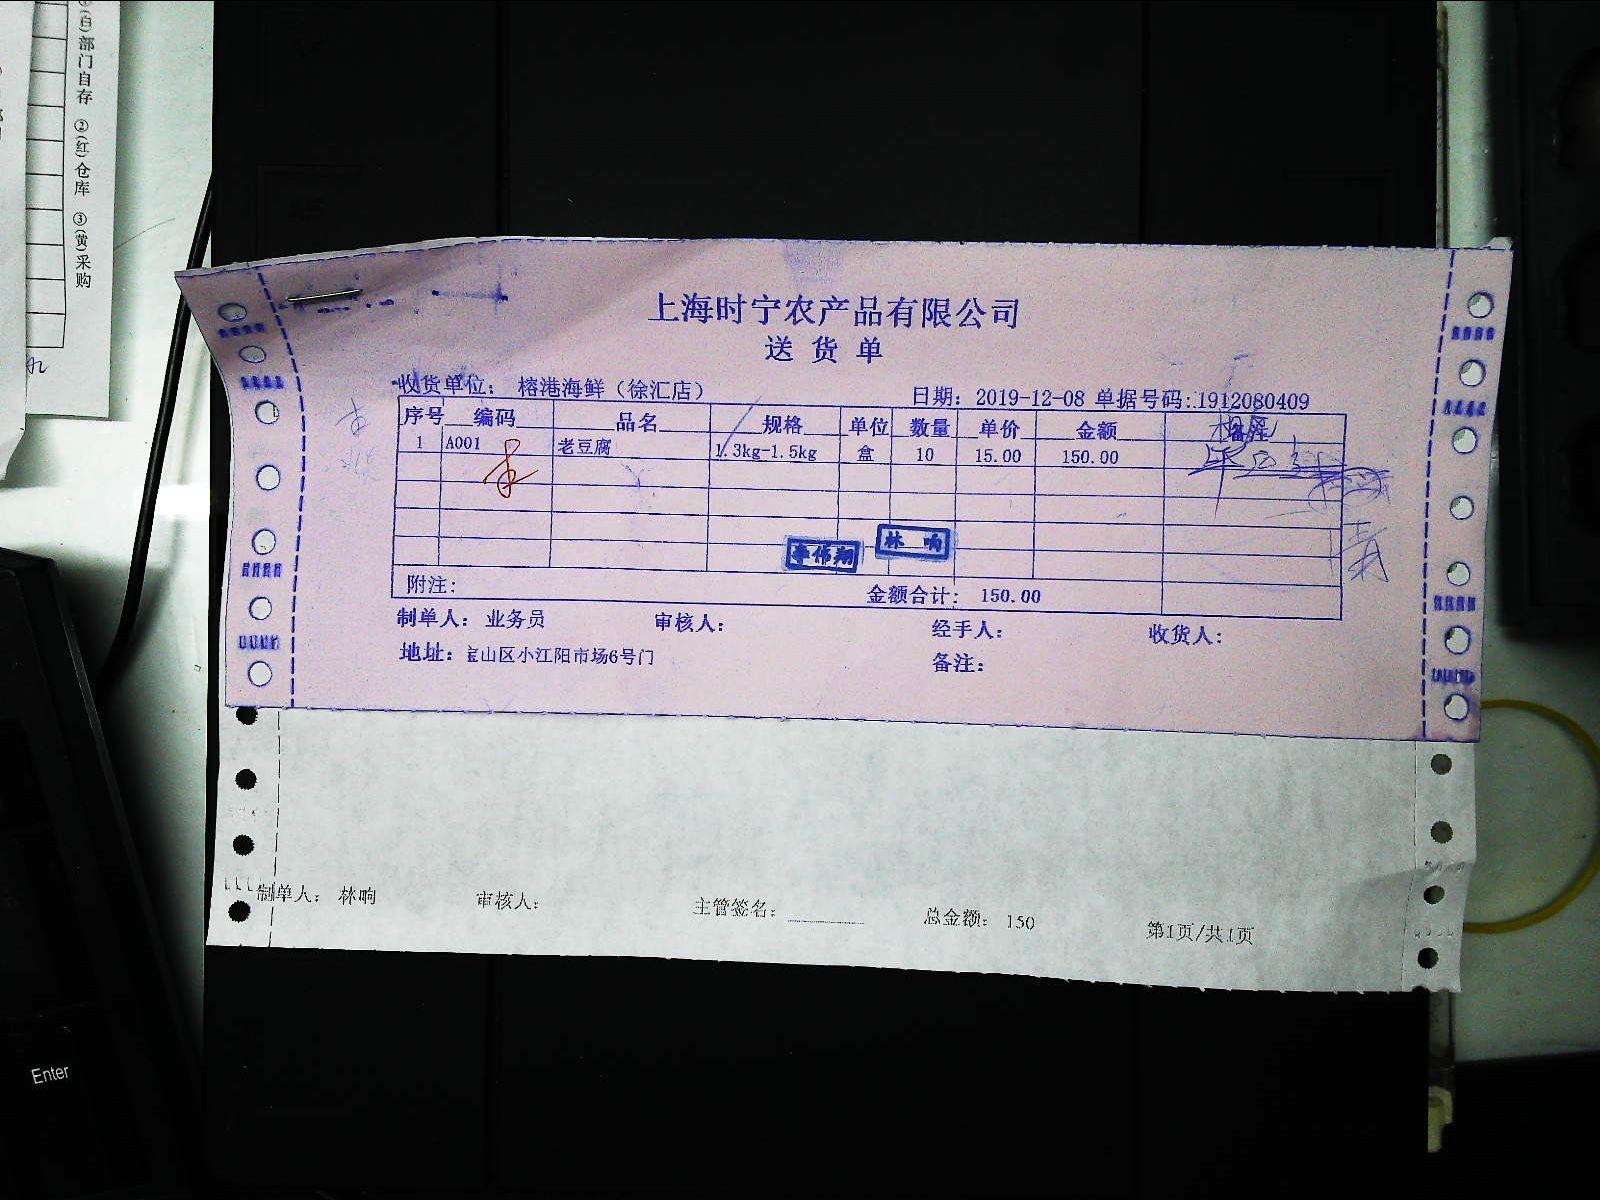 ①(白)部门自存 ②(红)仓库 ③(黄)采购
上海时宁农产品有限公司
送货单
收货单位: 榕港海鲜(徐汇店) 日期: 2019-12-08 单据号码:1912080409
序号 编码 品名 规格 单位 数量 单价 金额 备注
1 A001 老豆腐 1.3kg-1.5kg 盒 10 15.00 150.00
李伟翔 林响
附注: 金额合计: 150.00
制单人: 业务员 审核人: 经手人: 收货人:
地址: 宝山区小江阳市场6号门 备注:
制单人: 林响 审核人: 主管签名: 总金额: 150 第1页/共1页
Enter